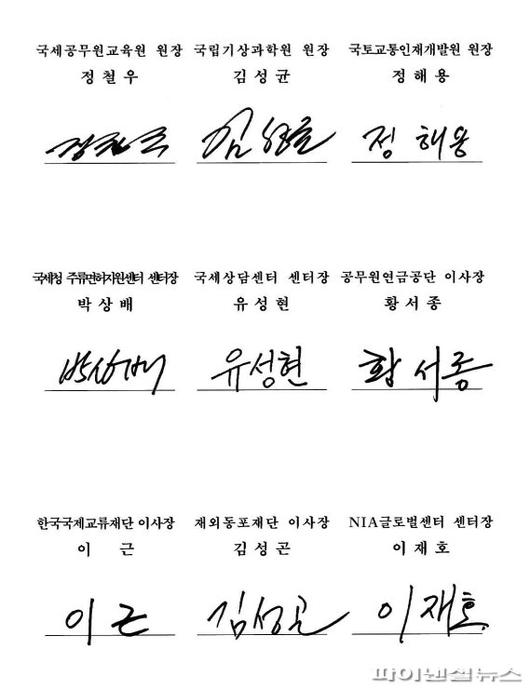 국세공무원교육원 원장 국립기상과학원 원장 국토교통인재개발원 원장
정철우 김성균 정해용
정철우 김성균 정해용
국세청 주류면허지원센터 센터장 국세상담센터 센터장 공무원연금공단 이사장
박상배 유성현 황서종
박상배 유성현 황서종
한국국제교류재단 이사장 재외동포재단 이사장 NIA글로벌센터 센터장
이 근 김성곤 이재호
이 근 김성곤 이재호
파이낸셜뉴스